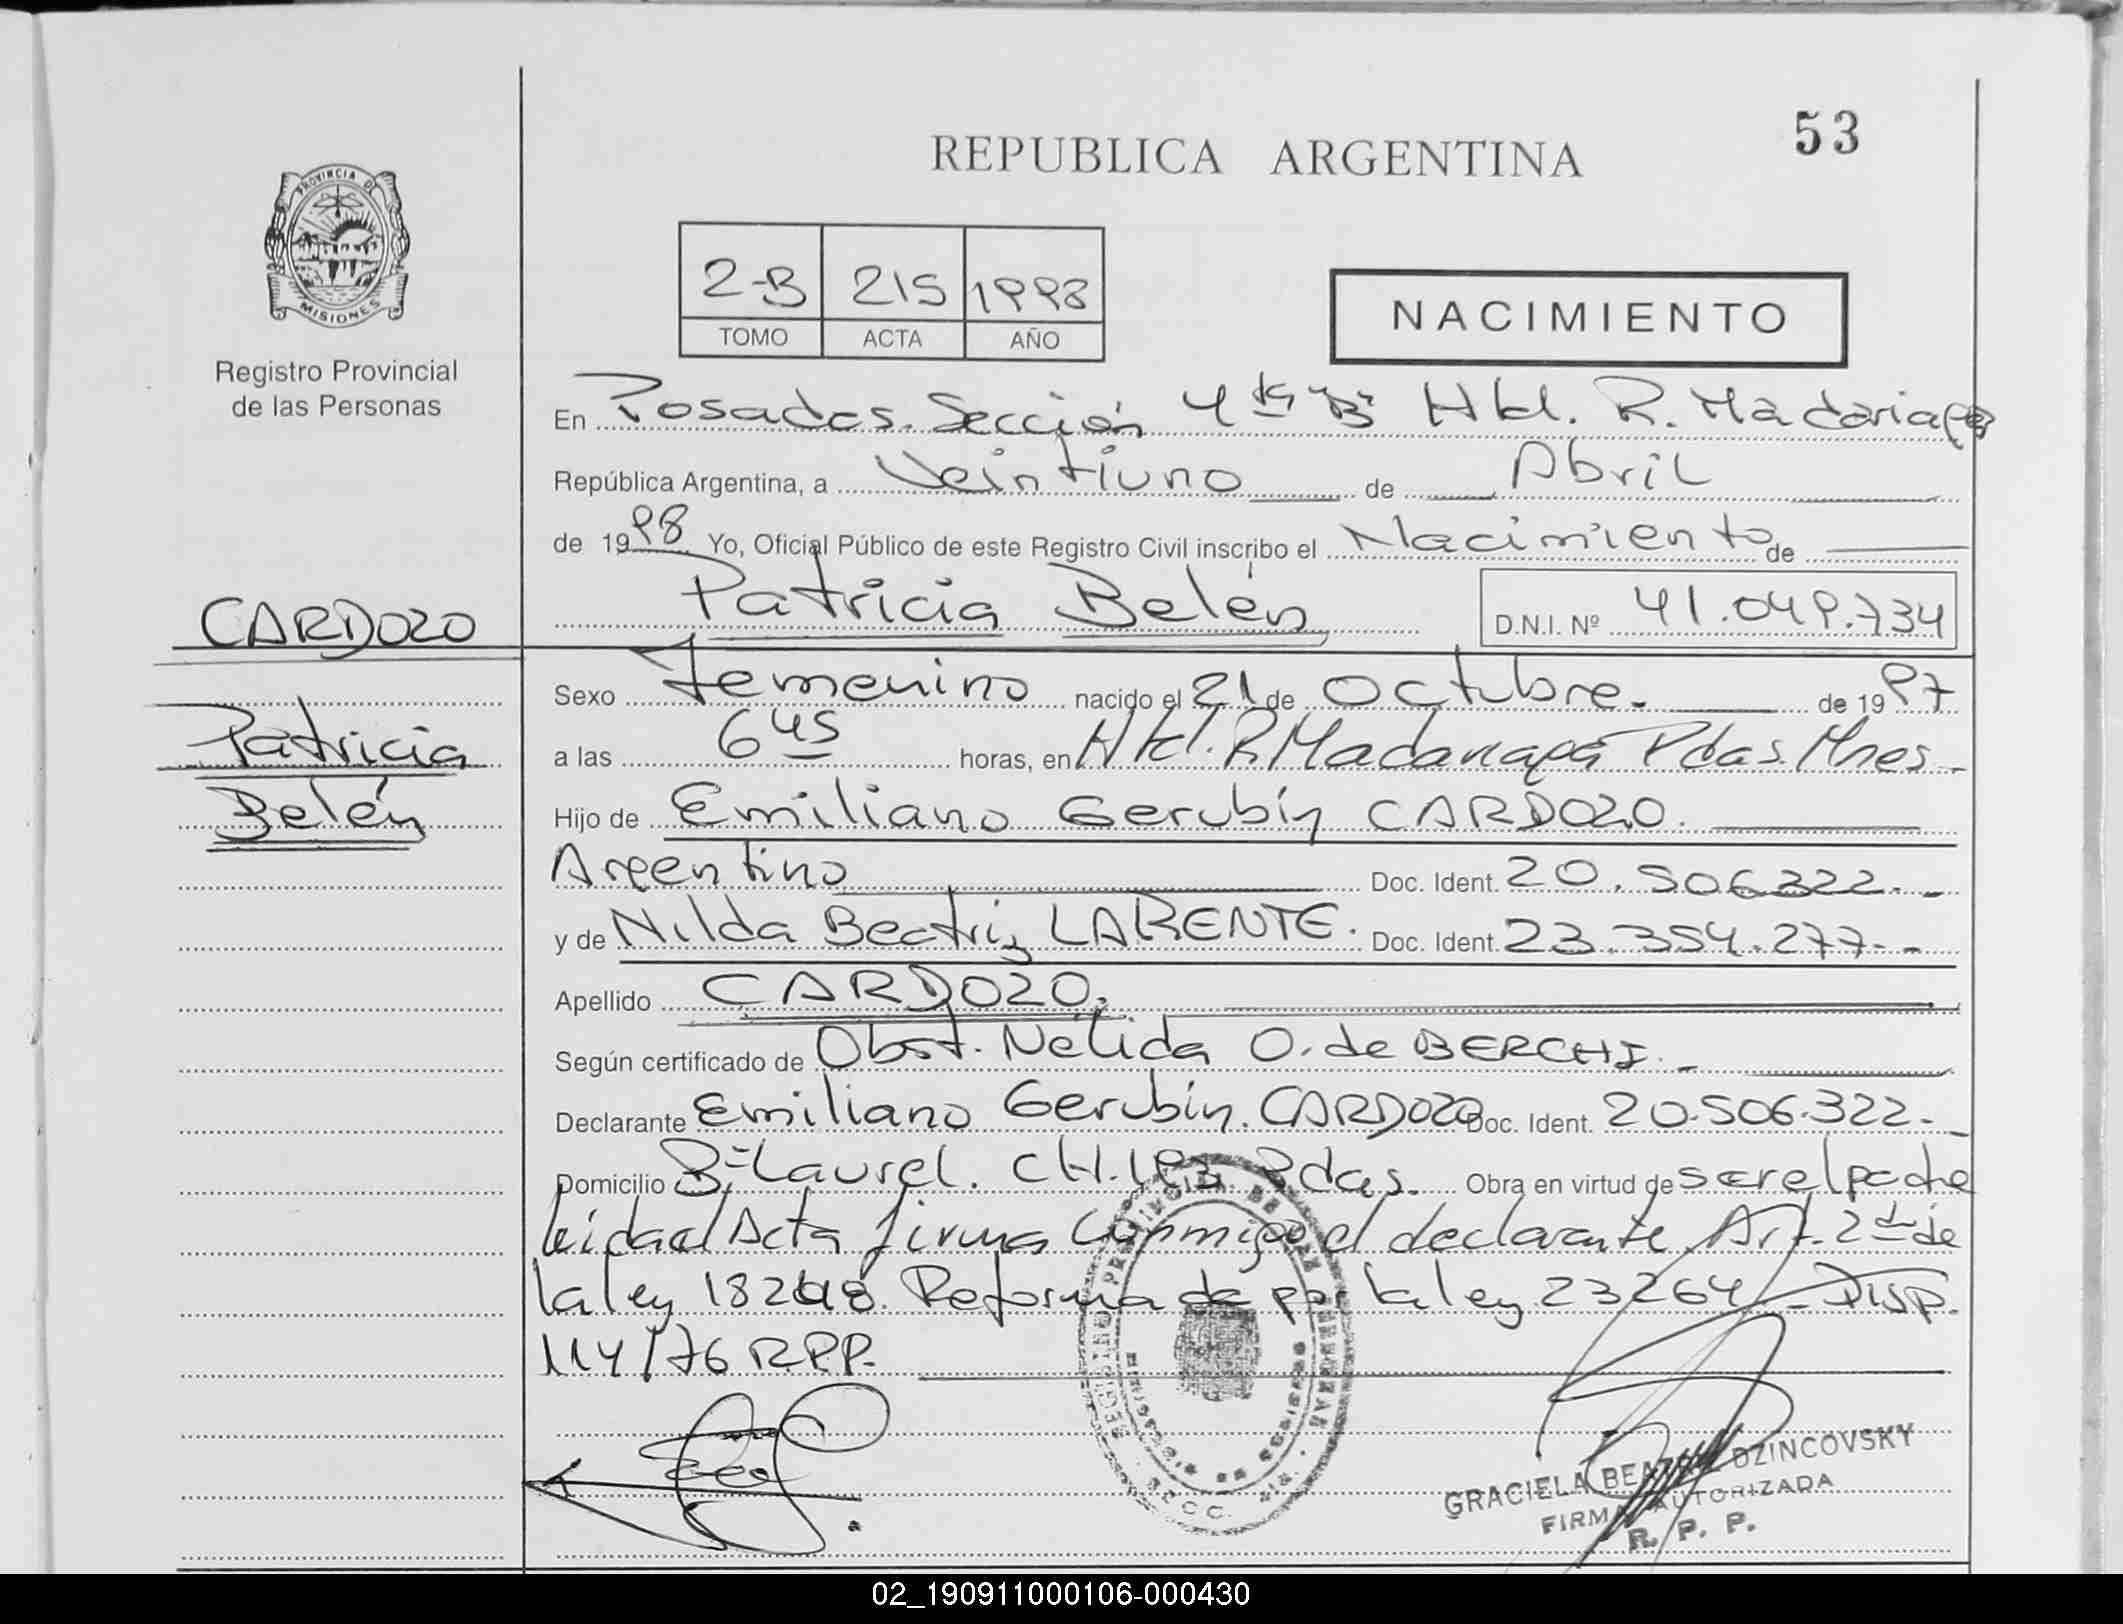 REPUBLICA ARGENTINA
53
PROVINCIA DE
MISIONES
Registro Provincial
de las Personas
2-B 215 1998
TOMO ACTA AÑO
NACIMIENTO
En Posadas. Sección 4ta "B" Htal. R. Madariaga
República Argentina, a Veintiuno de Abril
de 1998 Yo, Oficial Público de este Registro Civil inscribo el Nacimiento de
Patricia Belén D.N.I. Nº 41.049.734
CARDOZO
Patricia
Belén
Sexo femenino nacido el 21 de Octubre. de 1997
a las 6 45 horas, en Htal. R. Madariaga Pdas. Mnes.
Hijo de Emiliano Gerubín CARDOZO.
Argentino Doc. Ident. 20.506.322.-
y de Nilda Beatriz LARENTE. Doc. Ident. 23.354.277.-
Apellido CARDOZO.
Según certificado de Obst. Nélida O. de BERCHI.
Declarante Emiliano Gerubín. CARDOZO Doc. Ident. 20.506.322.-
Domicilio Bº Laurel. CH. Pdas. Obra en virtud de ser el padre
leída el Acta firma conmigo el declarante Art. 2do de
la ley 18248. Reformada por la ley 23264 - DISP.
114/76 R.P.P.
GRACIELA DZINCOVSKY
FIRMA AUTORIZADA
R. P. P.
02_190911000106-000430